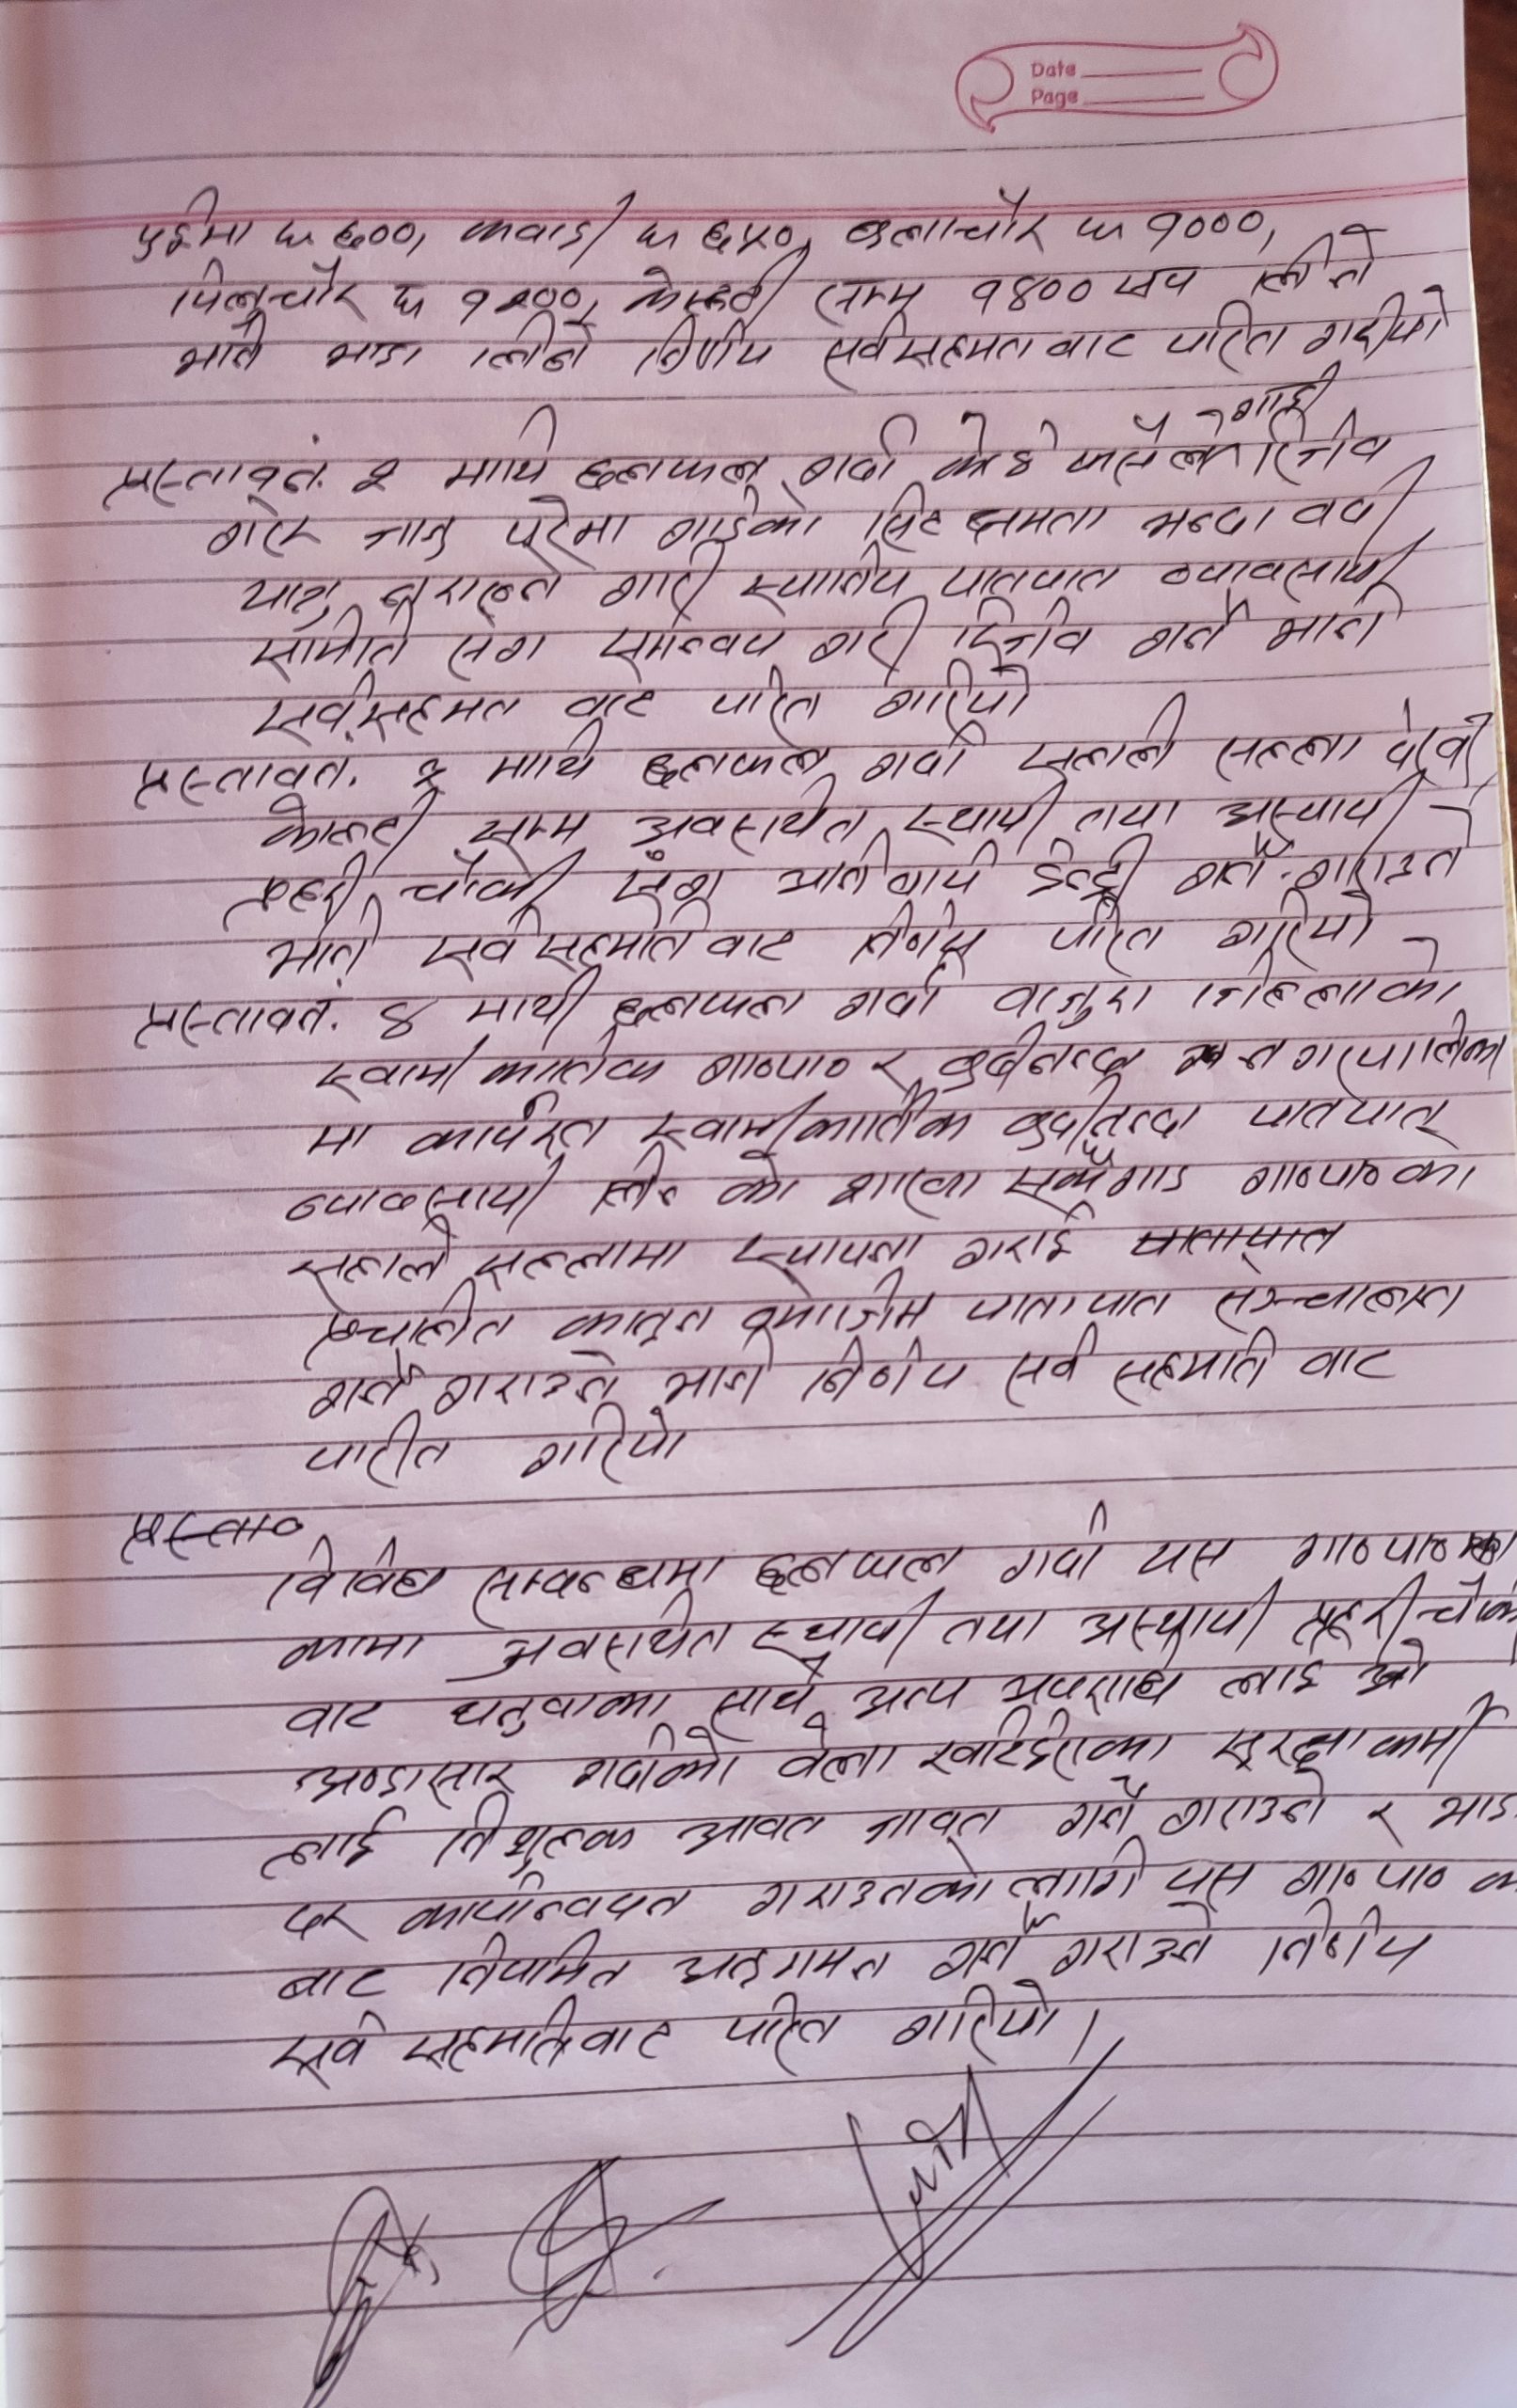 Date
Page
पुईमा रु ६००, कवाडी रु ६५०, छलाचौर रु १०००,
पिलुचौर रु १२००, केल्टी सम्म १४०० रुप लीने
भनि भाडा लिने निर्णय सर्वसहमत बाट पारित गरीयो
गाडी
प्रस्ताव नं. २ माथि छलफल गर्दा कोही कसैले रिजर्व
गरेर जानु परेमा गाडीको सिट क्षमता भन्दा बढी
यात्रु नराख्ने गरी स्थानिय यातयात व्यावसायी
समिति संग समन्वय गरी रिर्जव गर्ने भनि
सर्वसहमत बाट पारित गरियो
प्रस्ताव नं. ३ माथि छलफल गर्दा सल्ला देखी
सम्म अवस्थित स्थायी तथा अस्थायी
प्रहरी चौकी संग अनिवार्य इन्ट्री गर्ने गराउने
भनि सर्व सहमति बाट निर्णय पारित गरियो
प्रस्ताव नं. ४ माथी छलफल गर्दा बाजुरा जिल्लाको
स्वामी कार्तिक गा०पा० र बुढीनन्दा नगरपालिका
मा कार्यरत स्वामीकार्तिक बुढीनन्दा यातयात
व्यावसायी को शाखा गा०पा०का
सल्लामा स्थापना गराई यातायात
प्रचलित कानुन बमोजिम यातायात संञ्चालन
गर्ने गराउने भनि निर्णय सर्व सहमति बाट
पारीत गरियो
प्रस्ताव
विविध सम्बन्धमा छलफल गर्दा यस गा०पा०
कामा अवस्थित स्थायी तथा अस्थायी प्रहरी चौकी
बाट थुनुवाका साथै अन्य अपराध लाई
गर्दाको बेला खटिईएका सुरक्षा कर्मी
लाई निशुल्क आवत जावत गर्ने गराउने र भाडा
दर कार्यान्वयन गराउनको लागि यस गा०पा०
बाट नियमित अनुगमन गर्ने गराउने निर्णय
सर्व सहमतिबाट पारित गरियो।